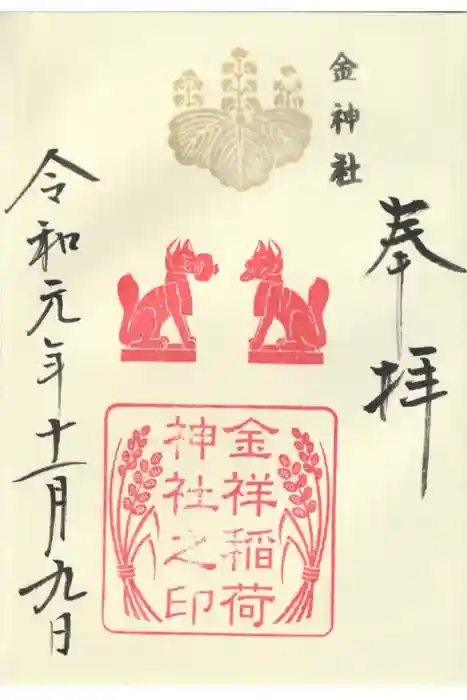 金神社
奉拝
金祥稲荷
神社之印
令和元年十一月九日